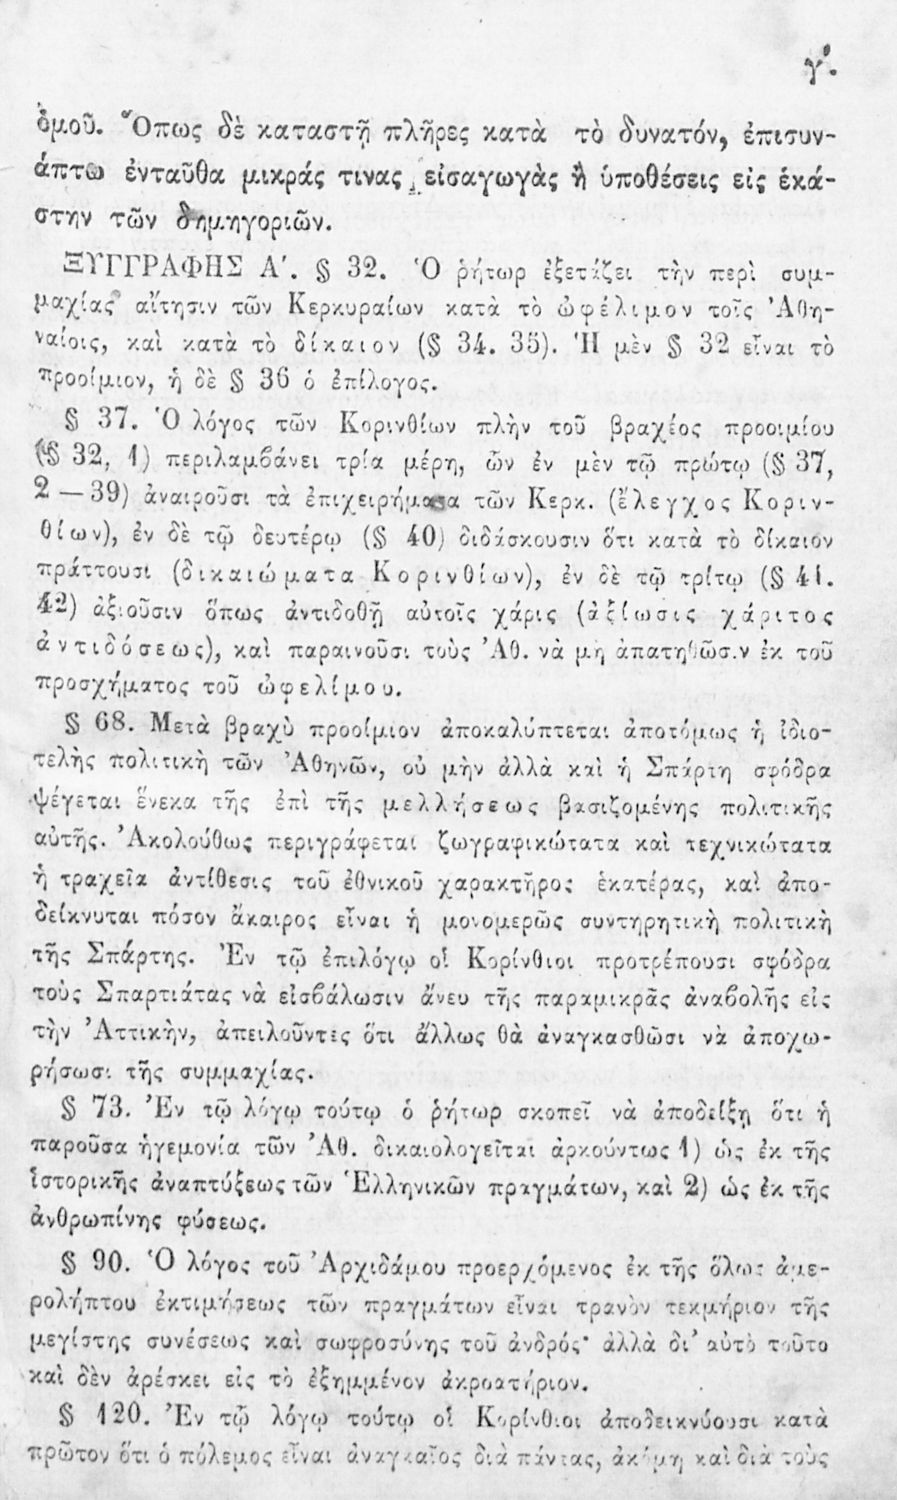 γ'.
ὁμοῦ. Ὅπως δὲ καταστῇ πλῆρες κατὰ τὸ δυνατόν, ἐπισυν-
άπτω ἐνταῦθα μικράς τινας εἰσαγωγὰς ἢ ὑποθέσεις εἰς ἑκά-
στην τῶν δημηγοριῶν.
ΞΥΓΓΡΑΦΗΣ Α'. § 32. Ὁ ῥήτωρ ἐξετάζει τὴν περὶ συμ-
μαχίας αἴτησιν τῶν Κερκυραίων κατὰ τὸ ὠφέλιμον τοῖς Ἀθη-
ναίοις, καὶ κατὰ τὸ δίκαιον (§ 34. 35). Ἡ μὲν § 32 εἶναι τὸ
προοίμιον, ἡ δὲ § 36 ὁ ἐπίλογος.
§ 37. Ὁ λόγος τῶν Κορινθίων πλὴν τοῦ βραχέος προοιμίου
(§ 32, 1) περιλαμβάνει τρία μέρη, ὧν ἐν μὲν τῷ πρώτῳ (§ 37,
2 — 39) ἀναιροῦσι τὰ ἐπιχειρήματα τῶν Κερκ. (ἔλεγχος Κοριν-
θίων), ἐν δὲ τῷ δευτέρῳ (§ 40) διδάσκουσιν ὅτι κατὰ τὸ δίκαιον
πράττουσι (δικαιώματα Κορινθίων), ἐν δὲ τῷ τρίτῳ (§ 41.
42) ἀξιοῦσιν ὅπως ἀντιδοθῇ αὐτοῖς χάρις (ἀξίωσις χάριτος
ἀντιδόσεως), καὶ παραινοῦσι τοὺς Ἀθ. νὰ μὴ ἀπατηθῶσιν ἐκ τοῦ
προσχήματος τοῦ ὠφελίμου.
§ 68. Μετὰ βραχὺ προοίμιον ἀποκαλύπτεται ἀποτόμως ἡ ἰδιο-
τελὴς πολιτικὴ τῶν Ἀθηνῶν, οὐ μὴν ἀλλὰ καὶ ἡ Σπάρτη σφόδρα
ψέγεται ἕνεκα τῆς ἐπὶ τῆς μελλήσεως βασιζομένης πολιτικῆς
αὐτῆς. Ἀκολούθως περιγράφεται ζωγραφικώτατα καὶ τεχνικώτατα
ἡ τραχεῖα ἀντίθεσις τοῦ ἐθνικοῦ χαρακτῆρος ἑκατέρας, καὶ ἀπο-
δείκνυται πόσον ἄκαιρος εἶναι ἡ μονομερῶς συντηρητικὴ πολιτικὴ
τῆς Σπάρτης. Ἐν τῷ ἐπιλόγῳ οἱ Κορίνθιοι προτρέπουσι σφόδρα
τοὺς Σπαρτιάτας νὰ εἰσβάλωσιν ἄνευ τῆς παραμικρᾶς ἀναβολῆς εἰς
τὴν Ἀττικὴν, ἀπειλοῦντες ὅτι ἄλλως θὰ ἀναγκασθῶσι νὰ ἀποχω-
ρήσωσι τῆς συμμαχίας.
§ 73. Ἐν τῷ λόγῳ τούτῳ ὁ ῥήτωρ σκοπεῖ νὰ ἀποδείξῃ ὅτι ἡ
παροῦσα ἡγεμονία τῶν Ἀθ. δικαιολογεῖται ἀρκούντως 1) ὡς ἐκ τῆς
ἱστορικῆς ἀναπτύξεως τῶν Ἑλληνικῶν πραγμάτων, καὶ 2) ὡς ἐκ τῆς
ἀνθρωπίνης φύσεως.
§ 90. Ὁ λόγος τοῦ Ἀρχιδάμου προερχόμενος ἐκ τῆς ὅλως ἀμε-
ρολήπτου ἐκτιμήσεως τῶν πραγμάτων εἶναι τρανὸν τεκμήριον τῆς
μεγίστης συνέσεως καὶ σωφροσύνης τοῦ ἀνδρός· ἀλλὰ δι' αὐτὸ τοῦτο
καὶ δὲν ἀρέσκει εἰς τὸ ἐξημμένον ἀκροατήριον.
§ 120. Ἐν τῷ λόγῳ τούτῳ οἱ Κορίνθιοι ἀποδεικνύουσι κατὰ
πρῶτον ὅτι ὁ πόλεμος εἶναι ἀναγκαῖος διὰ πάντας, ἀκόμη καὶ διὰ τοὺς